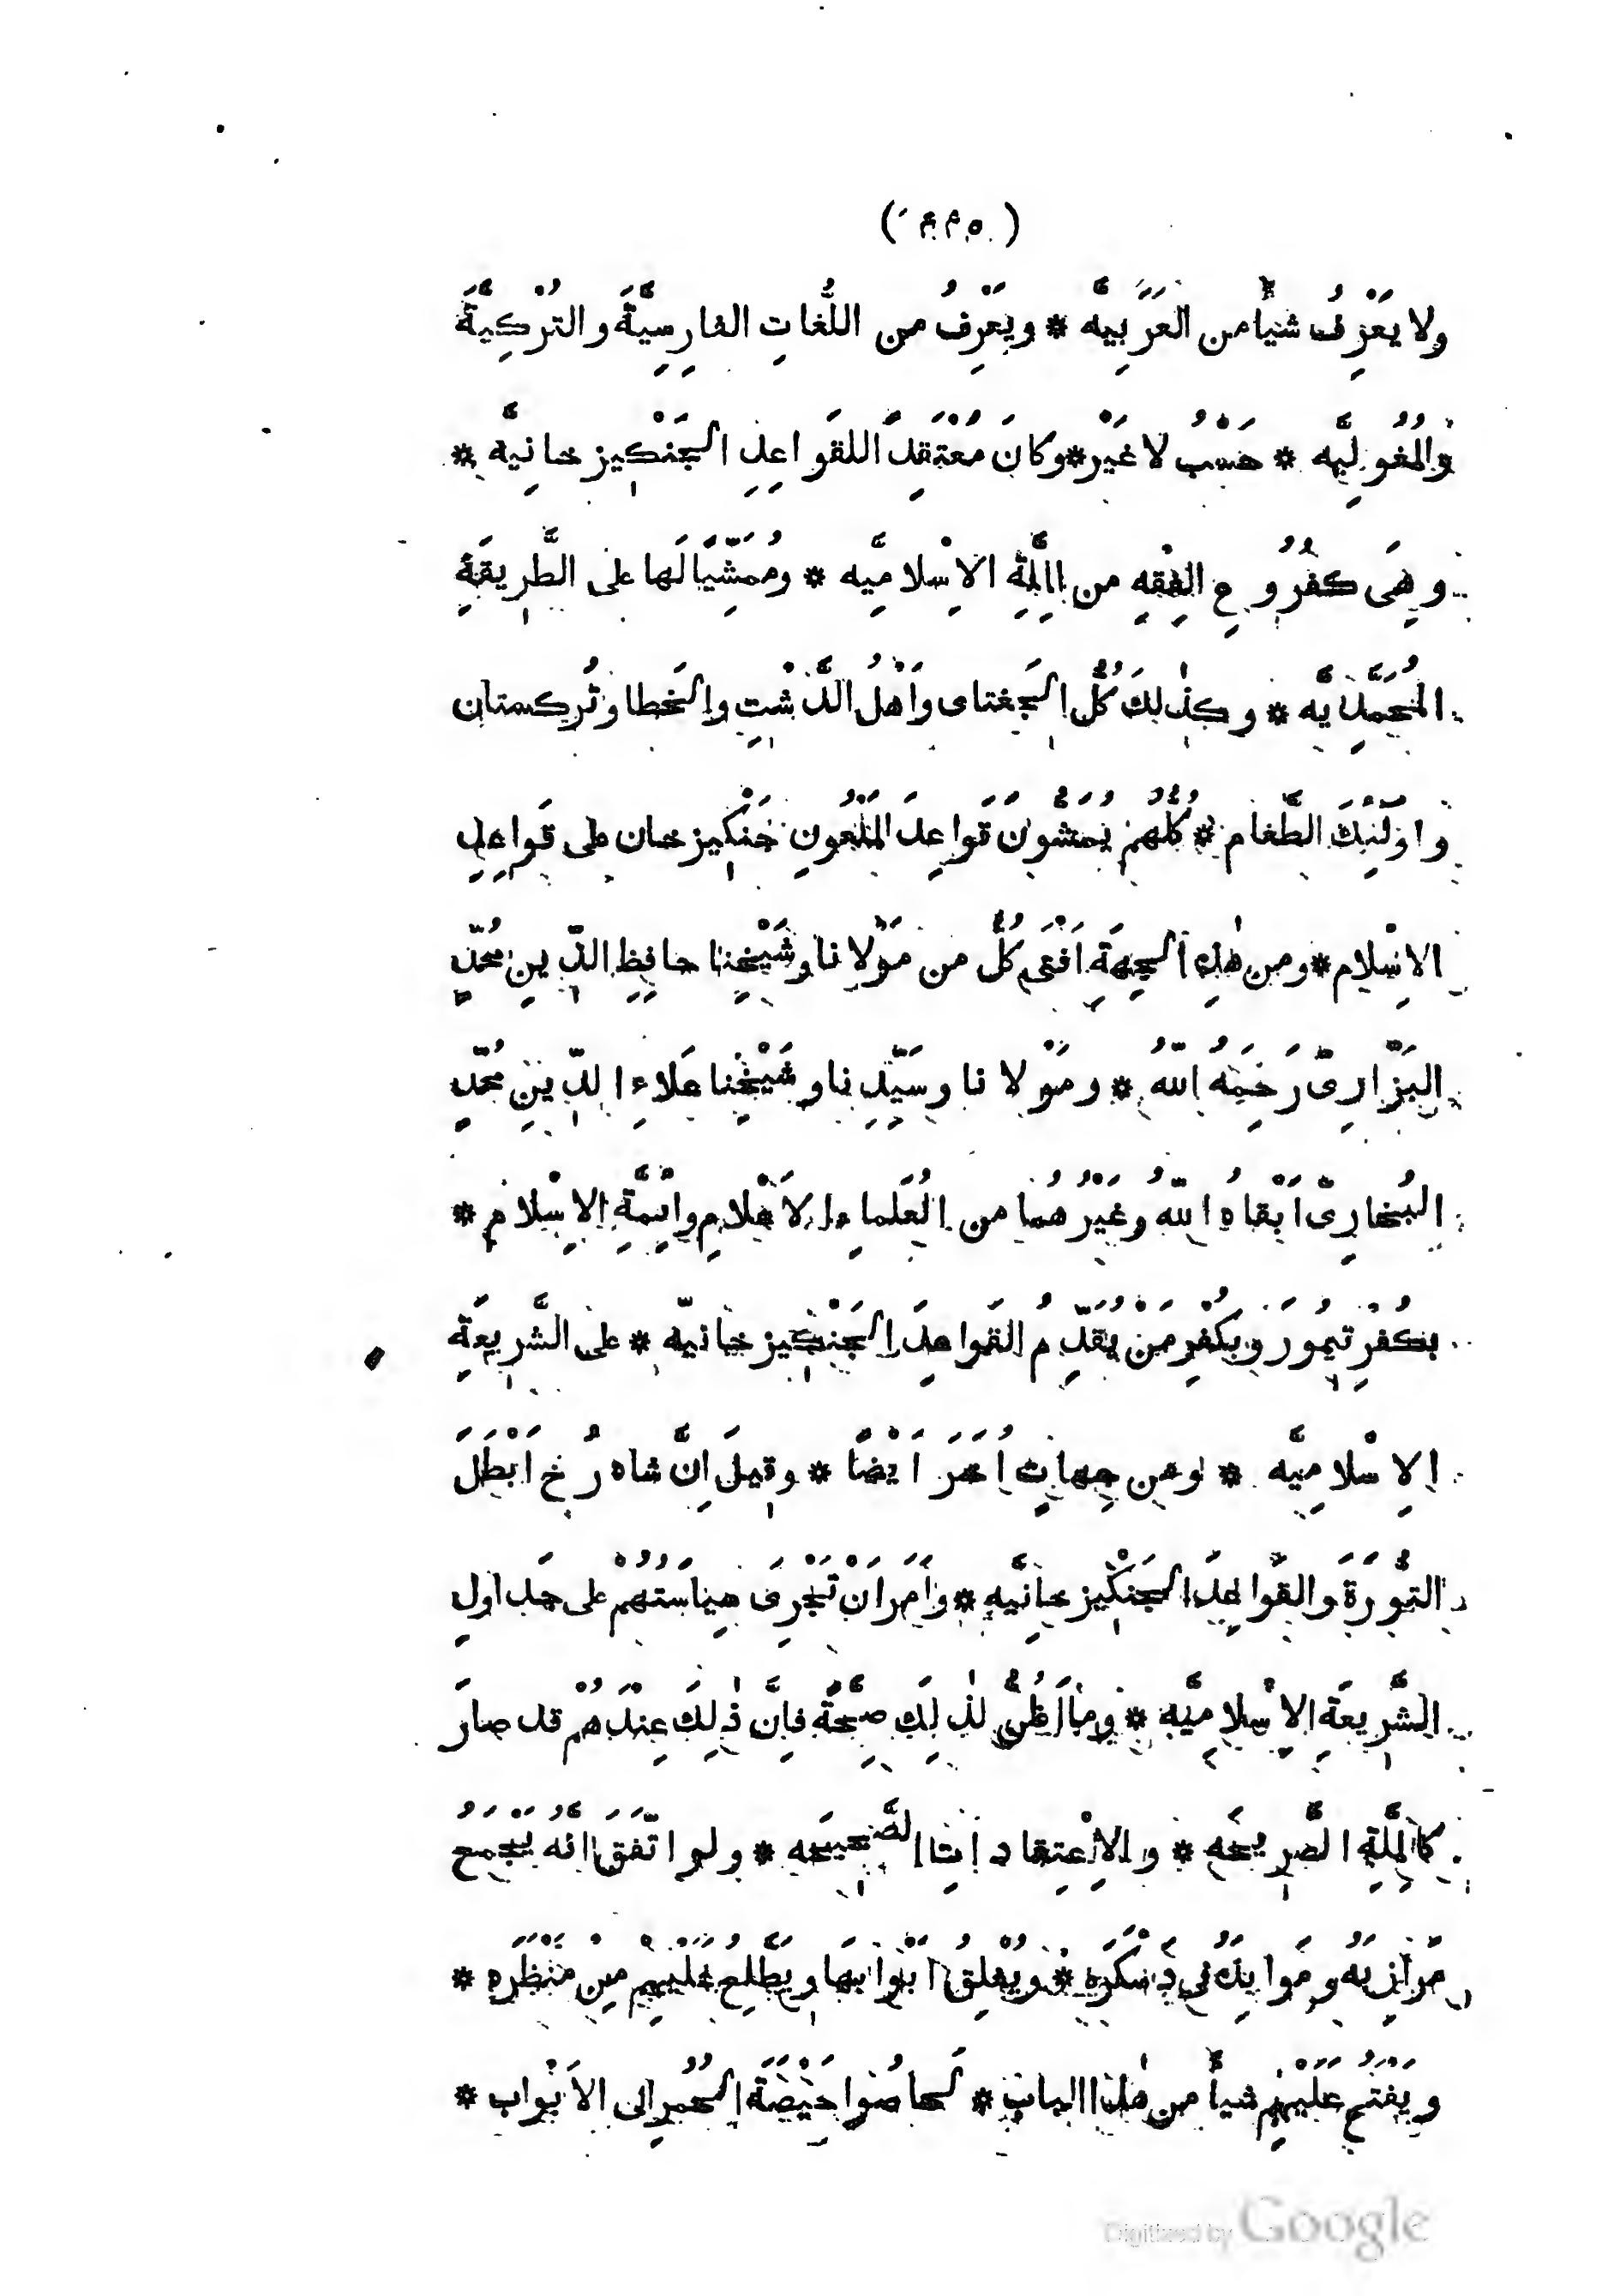 ولا يَعْرِفُ شَيْأً من العَرَبِيَّه * ويَعْرِفُ من اللُّغاتِ الفارِسِيَّةَ والتُرْكِيَّةَ
والمُغُولِيَّه * حَسْبُ لا غَيْر * وكانَ مُعْتَقِداً للقَواعِدِ الجَنْكِيز خانِيَّه *
وهِىَ كفُرُوعِ الفِقْهِ من المِلَّةِ الاِسْلامِيَّه * ومُمَشِّيًا لَها على الطَّرِيقَةِ
المُحَمَّدِيَّه * وكذٰلِكَ كُلُّ الجَغتاى وَاَهْلُ الدَّشْتِ والخَطا وتُركستان
واُولٰئِكَ الطَّغام * كُلُّهُمْ يُمَشُّونَ قَواعِدَ المَلْعُونِ جَنْكِيز خان على قَواعِدِ
الاِسْلام * ومن هٰذِهِ الجِهَةِ اَفْتَى كُلٌّ من مَوْلانا وشَيْخِنا حافِظِ الدِّينِ مُحَمَّدٍ
البَزَّازِىِّ رَحِمَهُ اللّٰهُ * ومَوْلانا وسَيِّدِنا وشَيْخِنا عَلاءِ الدِّينِ مُحَمَّدٍ
البُخارِىِّ اَبْقاهُ اللّٰهُ وغَيْرُهُما من العُلَماءِ الاَعْلامِ وائِمَّةِ الاِسْلام *
بكُفْرِ تَيْمُورَ وبكُفْرِ مَنْ يُقَدِّمُ القَواعِدَ الجَنْكِيز خانِيَّه * على الشَّرِيعَةِ
الاِسْلامِيَّه * ومن جِهاتٍ اُخَرَ اَيْضًا * وقِيلَ اِنَّ شاه رُخ اَبْطَلَ
التُّورَةَ والقَواعِدَ الجَنْكِيز خانِيَّه * واَمَرَ اَنْ تَجْرِىَ سِياسَتُهُمْ على جَداوِلِ
الشَّرِيعَةِ الاِسْلامِيَّه * وما اَظُنُّ لذٰلِكَ صِحَّةً فاِنَّ ذٰلِكَ عِنْدَهُمْ قد صارَ
كالمِلَّةِ الصَّرِيحَه * والاِعْتِقاداتِ الصَّحِيحَه * ولو اتَّفَقَ اَنَّهُ يَجْمَعُ
مَرازِبَهُ ومَوابِذَهُ فى دَسْكَرَه * ويُغْلِقُ اَبْوابَها ويَطَّلِعُ عَلَيْهِمْ مِنْ مَنْظَرَه *
ويَفْتَحُ عَلَيْهِم شيأً من هٰذا الباب * لَحاصُوا حَيْصَةَ الحُمُرِ الى الاَبْواب *
Digitized by Google